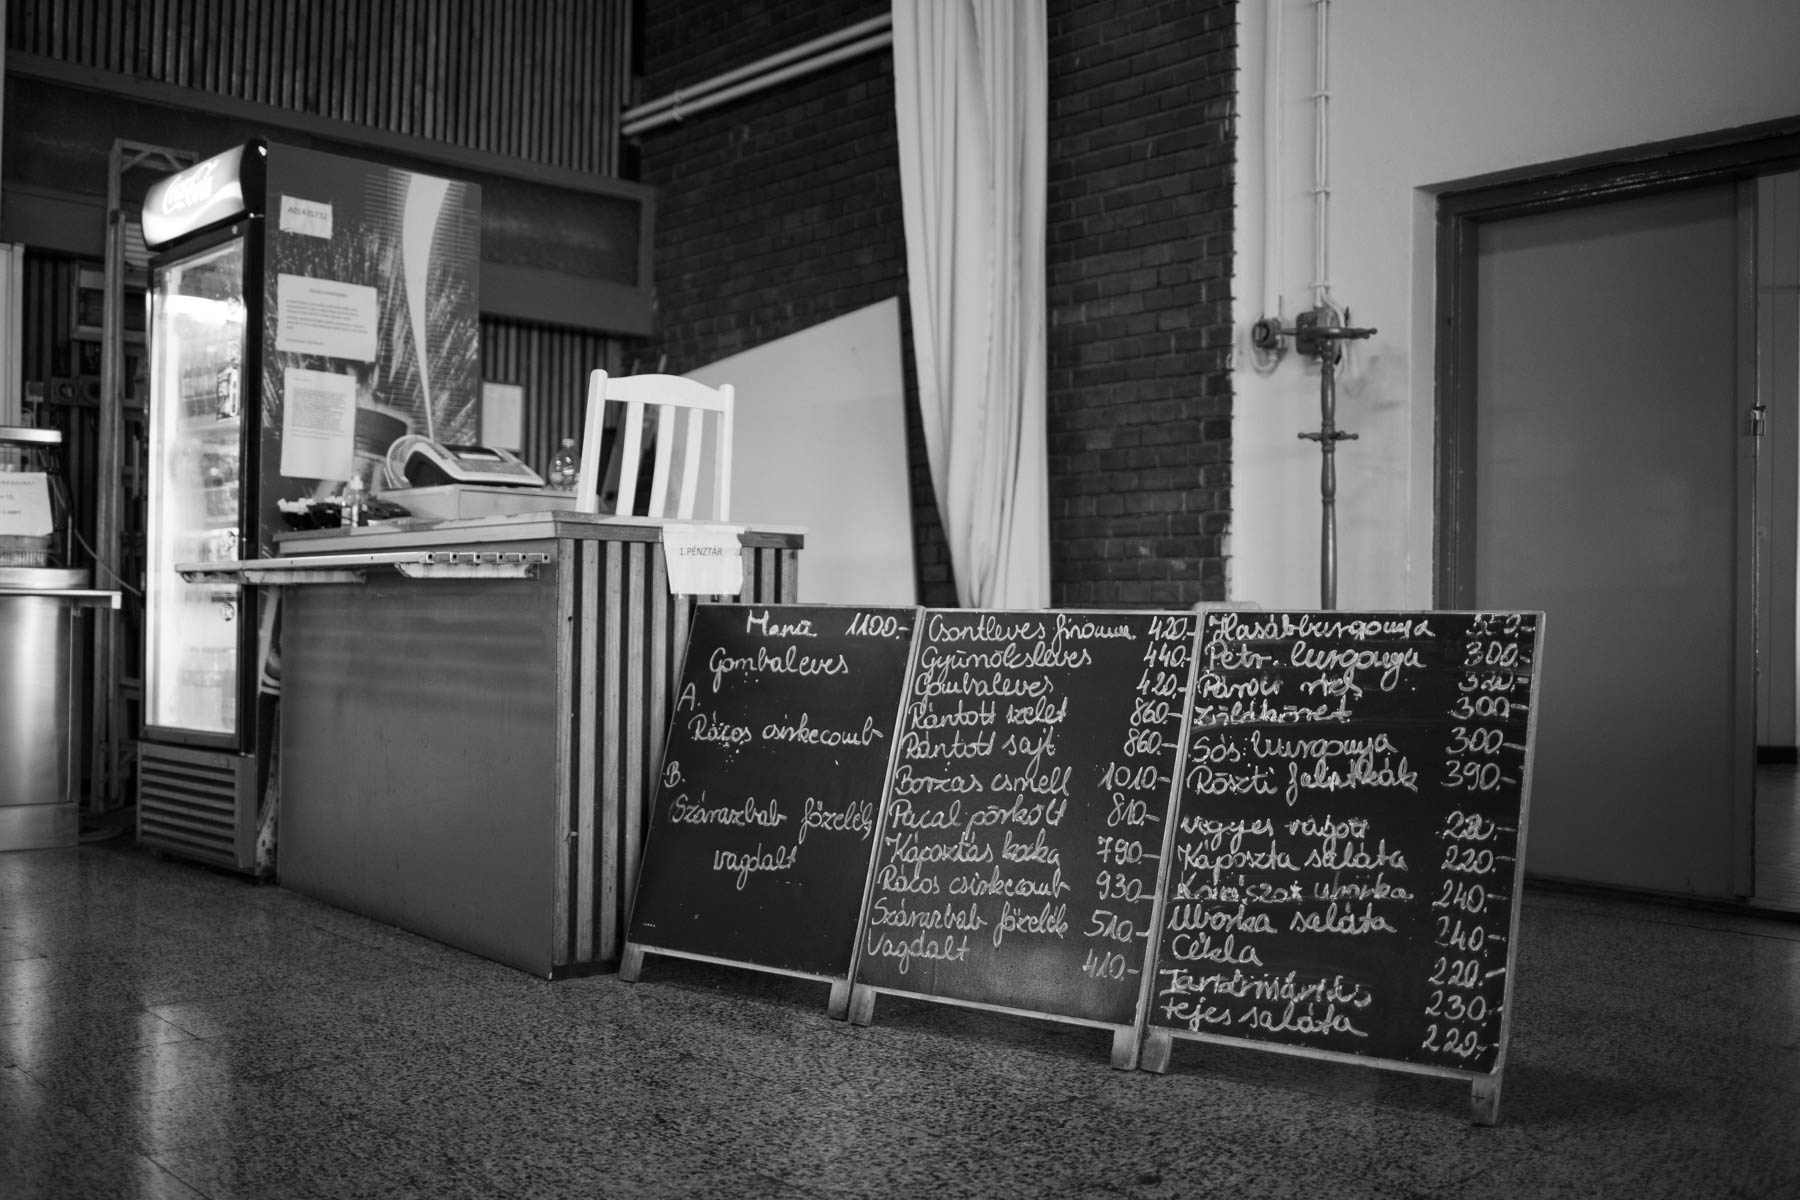 Coca-Cola
A01435732
1.PÉNZTÁR
Menü 1100.-
Gombaleves
A.
Rácos csirkecomb
B.
Szárazbab főzelék
vagdalt
Csontleves finoman 420.-
Gyümölcsleves 440.-
Gombaleves 420.-
Rántott szelet 860.-
Rántott sajt 860.-
Borzas csmell 1010.-
Pacal pörkölt 810.-
Káposztás kocka 790.-
Rácos csirkecomb 930.-
Szárazbab főzelék 510.-
Vagdalt 410.-
Hasábburgonya
Petr. burgonya 300.-
Párolt rizs 320.-
Zöldköret 300.-
Sós burgonya 300.-
Röszti falatkák 390.-
vegyes vágott
Káposzta saláta 220.-
Kovászos uborka 240.-
Uborka saláta 240.-
Cékla 220.-
Tartármártás 230.-
tejes saláta 220.-